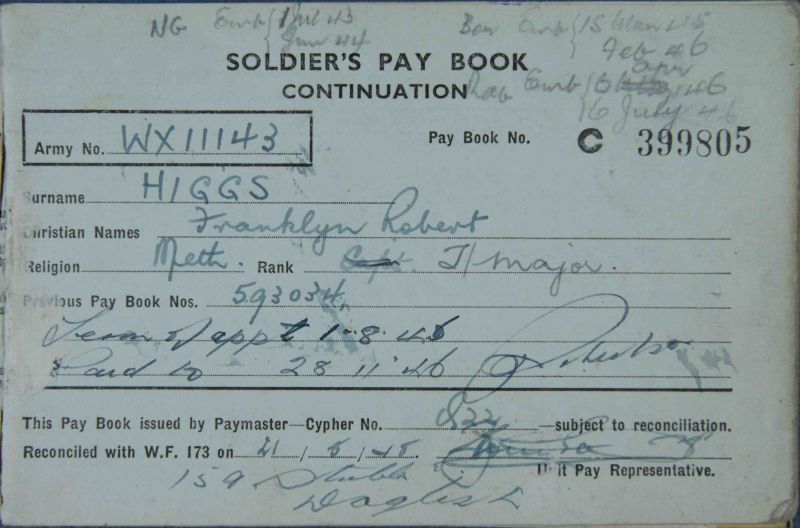 NG Emb { Jul 43 Bor Emb { 15 Mar 45
Jun 44 Feb 46
SOLDIER'S PAY BOOK Apr
CONTINUATION Rab Emb 46
16 July 46
Army No. WX11143 Pay Book No. C 399805
Surname HIGGS
Christian Names Franklyn Robert
Religion Meth. Rank Capt. T/Major.
Previous Pay Book Nos. 593034
Term of appt 1.8.45
Paid to 28 11 46
This Pay Book issued by Paymaster—Cypher No. —subject to reconciliation.
Reconciled with W.F. 173 on 21 / 5 / 45.
Unit Pay Representative.
159 Stubbs
Daglish